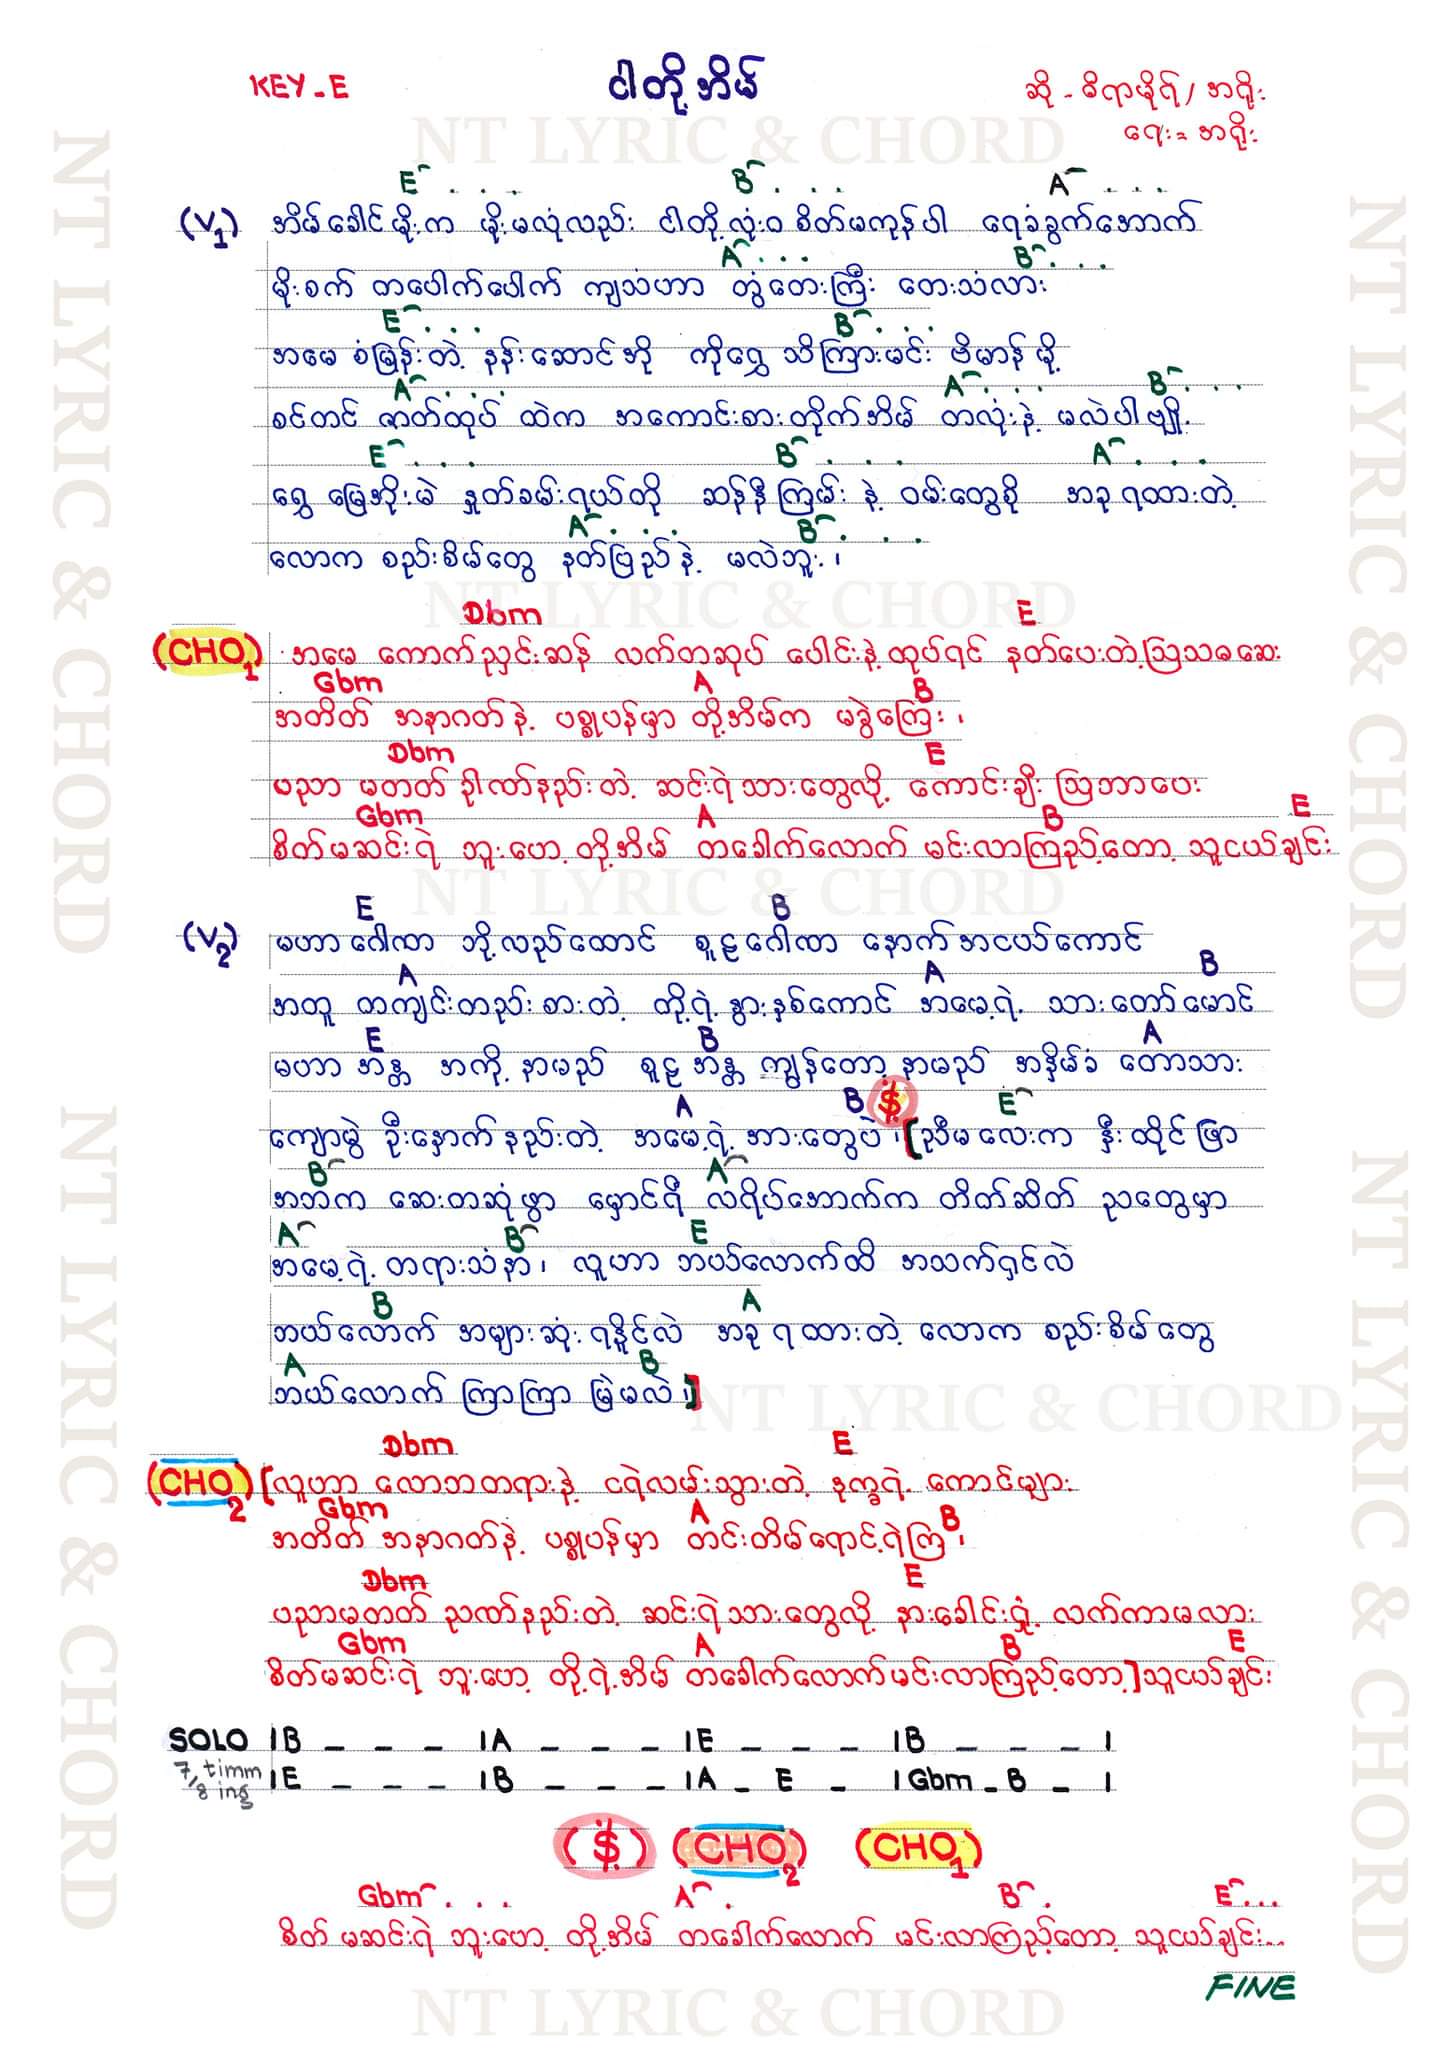 KEY-E
ငါတို့အိမ်
ဆို - စိုင်းဆိုင် / အငဲ
ရေး = အငဲ
NT LYRIC & CHORD
E . . . B . . . A . . .
(V1) အိမ်ခေါင်မိုးက မိုးမလုံလည်း ငါတို့လုံးဝ စိတ်မကုန်ပါ ရေခံခွက်အောက်
A . . . B . . .
မိုးစက် တပေါက်ပေါက် ကျသံဟာ တွံတေးကြီး တေးသံလား
E . . . B . . .
အမေ စံမြန်းတဲ့ နန်းဆောင်အို ကိုရွှေ သိကြားမင်း ဗိမာန်မို့
A . . . A . . . B . . .
စင်တင် ဇာတ်ထုပ် ထဲက အကောင်းစားတိုက်အိမ် တလုံးနဲ့ မလဲပါဗျို့
E . . . B . . . A . . .
ရွှေ မြေအိုးမဲ နှုတ်ခမ်းရယ်တို ဆန်နီကြမ်း နဲ့ ဝမ်းတွေစို အခု ရထားတဲ့
A . . . B . . .
လောက စည်းစိမ်တွေ နတ်ပြည်နဲ့ မလဲဘူး ၊
Dbm E
(CHO1) အမေ ကောက်ညှင်းဆန် လက်တဆုပ် ပေါင်းနဲ့ထုပ်ရင် နတ်ပေးတဲ့ဩသဓဆေး
Gbm A B
အတိတ် အနာဂတ်နဲ့ ပစ္စုပန်မှာ တို့အိမ်က မခွဲကြေး ၊
Dbm E
ပညာ မတတ် ဉာဏ်နည်းတဲ့ ဆင်းရဲသားတွေလို့ ကောင်းချီး ဩဘာပေး
Gbm A B E
စိတ်မဆင်းရဲ ဘူးဟေ့ တို့အိမ် တခေါက်လောက် မင်းလာကြည့်တော့ သူငယ်ချင်း
E B
(V2) မဟာဂေါဏ ဘို့လည်ထောင် စူဠဂေါဏ နောက်အငယ်ကောင်
A A B
အတူ တကျင်းတည်းစားတဲ့ တို့ရဲ့ နွားနှစ်ကောင် အမေ့ရဲ့ သားတော်မောင်
E B A
မဟာ အန္တ အကို့ နာမည် စူဠအန္တ ကျွန်တော့ နာမည် အနှိမ်ခံ တောသား
A B $ E
ကျောမွဲ ဦးနှောက်နည်းတဲ့ အမေ့ရဲ့ အားတွေပဲ ၊ [ညီမလေးက နှီးထိုင်ဖြာ
B A
အဘက ဆေးတဆုံဖွာ မှောင်ရီ လရိပ်အောက်က တိတ်ဆိတ် ညတွေမှာ
A B E
အမေ့ရဲ့ တရားသံနာ ၊ လူဟာ ဘယ်လောက်ထိ အသက်ရှင်လဲ
B A
ဘယ်လောက် အများဆုံး ရနိုင်လဲ အခု ရထားတဲ့ လောက စည်းစိမ်တွေ
A B
ဘယ်လောက် ကြာကြာ မြဲမလဲ ၊]
Dbm E
(CHO2) [လူဟာ လောဘတရားနဲ့ ငရဲလမ်းသွားတဲ့ ဒုက္ခရဲ့ ကောင်များ
Gbm A B
အတိတ် အနာဂတ်နဲ့ ပစ္စုပန်မှာ တင်းတိမ်ရောင့်ရဲကြ ၊
Dbm E
ပညာမတတ် ညဏ်နည်းတဲ့ ဆင်းရဲသားတွေလို့ နားခေါင်းရှုံ့ လက်ကာမလား
Gbm A B E
စိတ်မဆင်းရဲ ဘူးဟေ့ တို့ရဲ့အိမ် တခေါက်လောက်မင်းလာကြည့်တော့]သူငယ်ချင်း
SOLO |B - - - |A - - - |E - - - |B - - - |
7/8 timming |E - - - |B - - - |A - E - |Gbm - B - |
($) (CHO2) (CHO1)
Gbm . . . A . B . E...
စိတ် မဆင်းရဲ ဘူးဟေ့ တို့အိမ် တခေါက်လောက် မင်းလာကြည့်တော့ သူငယ်ချင်း...
FINE